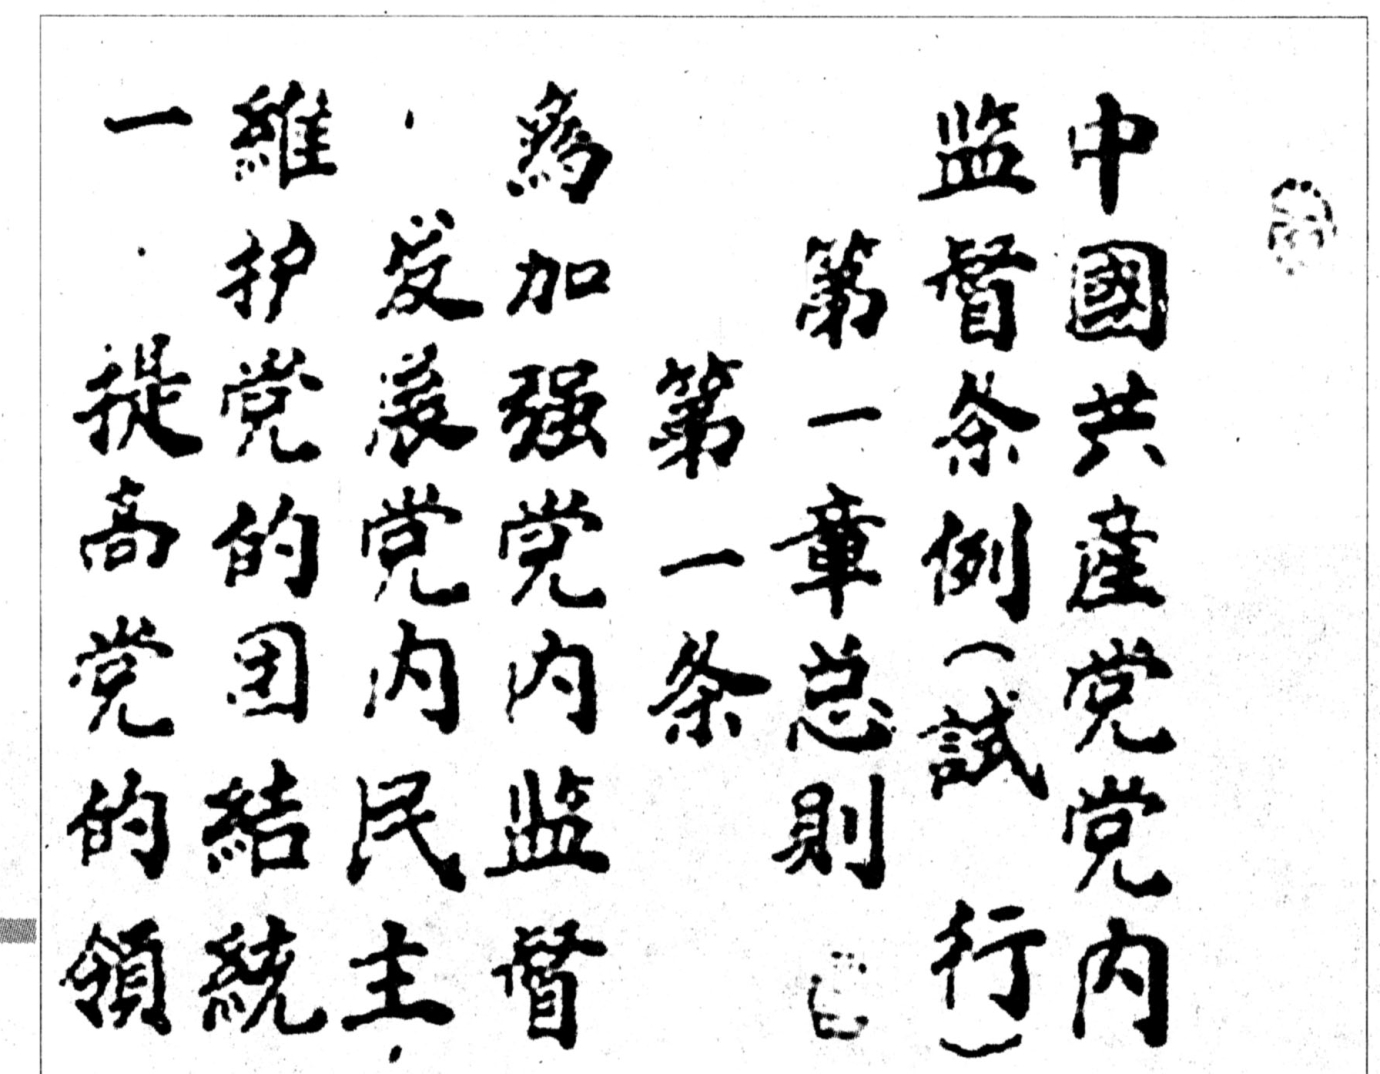 中國共産党党内
监督条例(試行)
第一章总则
第一条
為加强党内监督
、发展党内民主、
維护党的团結統
一、提高党的領